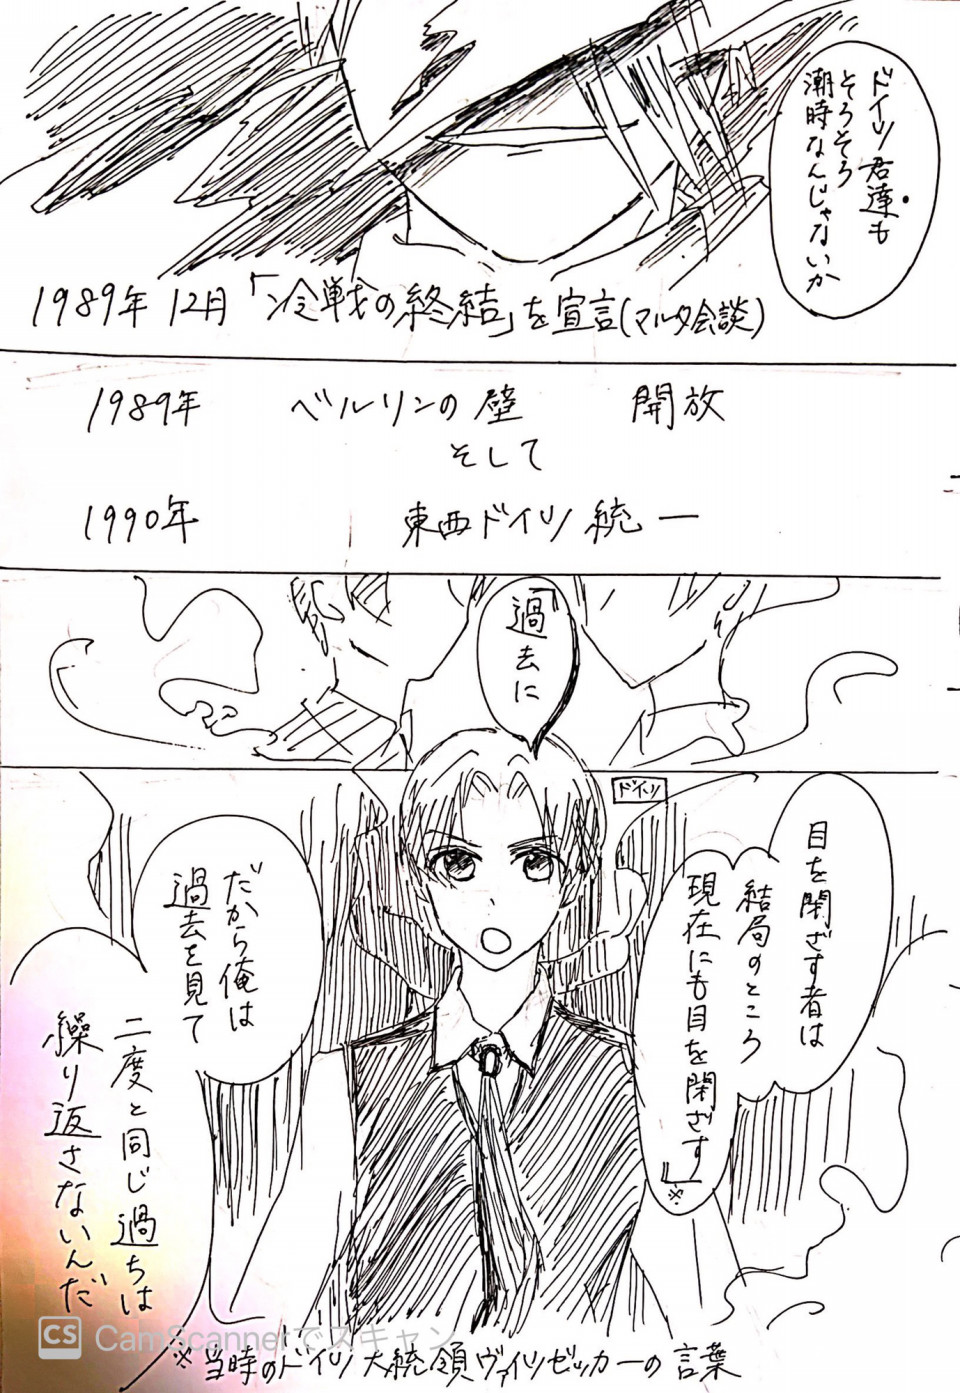 ドイツ君達も
そろそろ
潮時なんじゃないか
1989年 12月「冷戦の終結」を宣言(マルタ会談)
1989年 ベルリンの壁 開放
そして
1990年 東西ドイツ統一
「過去に
ドイツ
目を閉ざす者は
結局のところ
現在にも目を閉ざす」※
だから俺は
過去を見て
二度と同じ過ちは
繰り返さないんだ
CS CamScannerでスキャン
※当時のドイツ大統領ヴァイツゼッカーの言葉